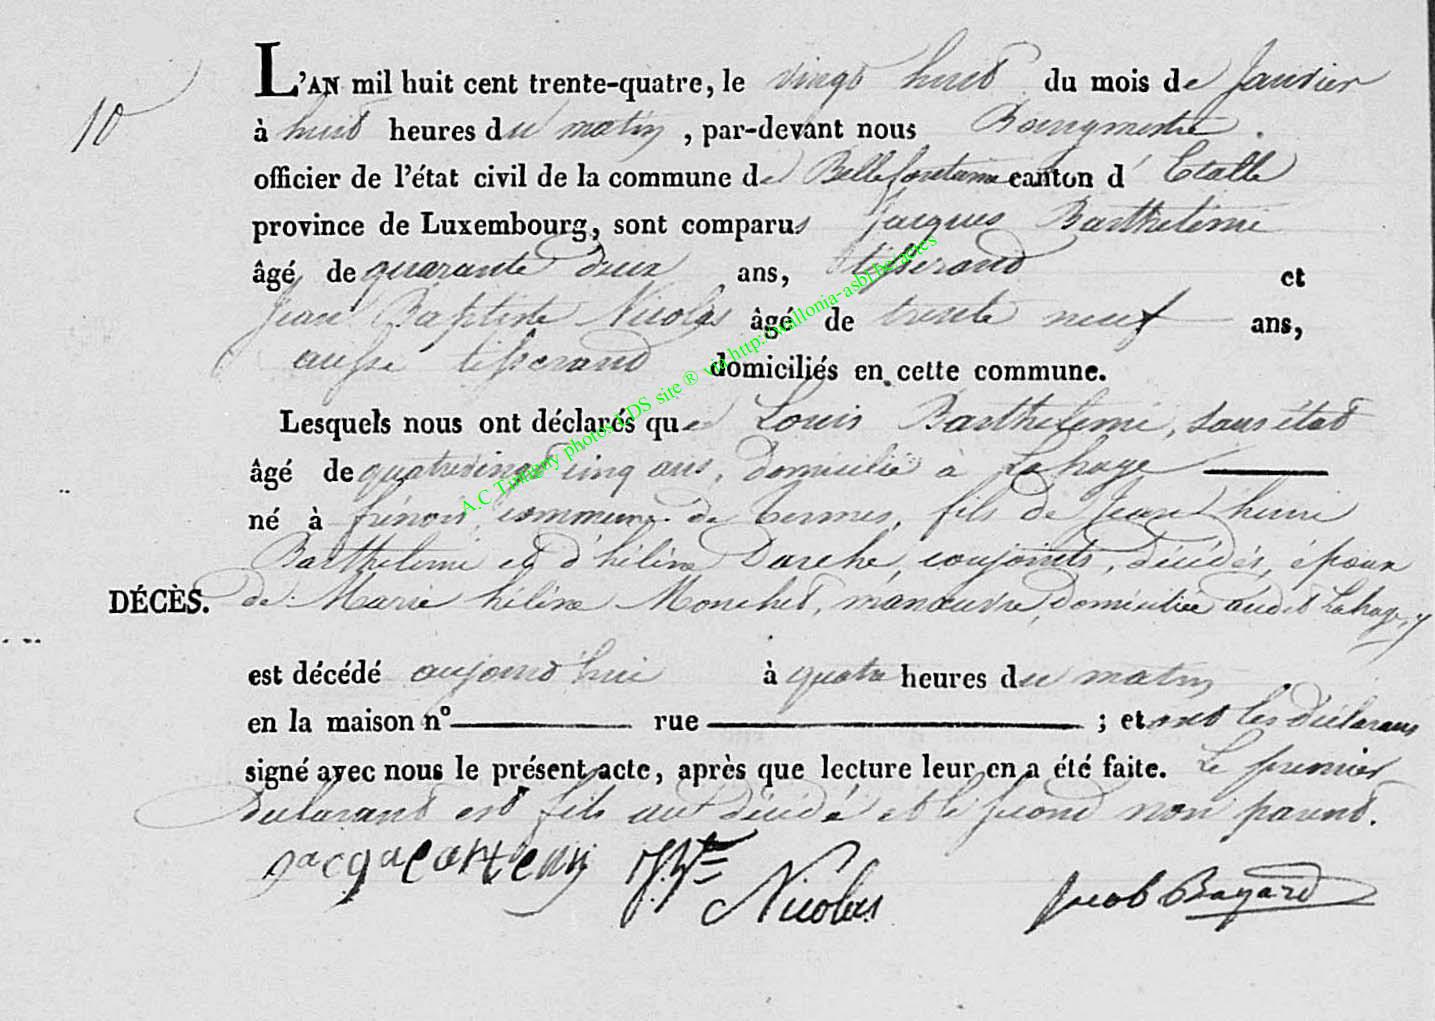 L'AN mil huit cent trente-quatre, le vingt huit du mois de Janvier
10
à huit heures du matin, par-devant nous Bourgmestre
officier de l'état civil de la commune de Bellefontaine canton d'Etalle
province de Luxembourg, sont comparus Jacques Barthelemi
âgé de quarante deux ans, tisserand et
Jean Baptiste Nicolas âgé de trente neuf ans,
aussi tisserand domiciliés en cette commune.
Lesquels nous ont déclarés que Louis Barthelemi, sans état
âgé de quatrevingt cinq ans, domicilié à Lahage
né à frénois, commune de Termes, fils de Jean henri
Barthelemi et d'hélène Darche, conjoints, décédés, époux
DÉCÈS. de Marie hélène Monchet, manœuvre, domiciliée audit Lahage, y
est décédé aujourd'hui à quatre heures du matin
en la maison n° rue ; et ont les déclarans
signé avec nous le présent acte, après que lecture leur en a été faite. Le premier
déclarant est fils au décédé et le second non parent.
J.Bte Nicolas Jacob Bayard
A.C Tintigny photos LDS site ® via http://wallonia-asbl.be/actes